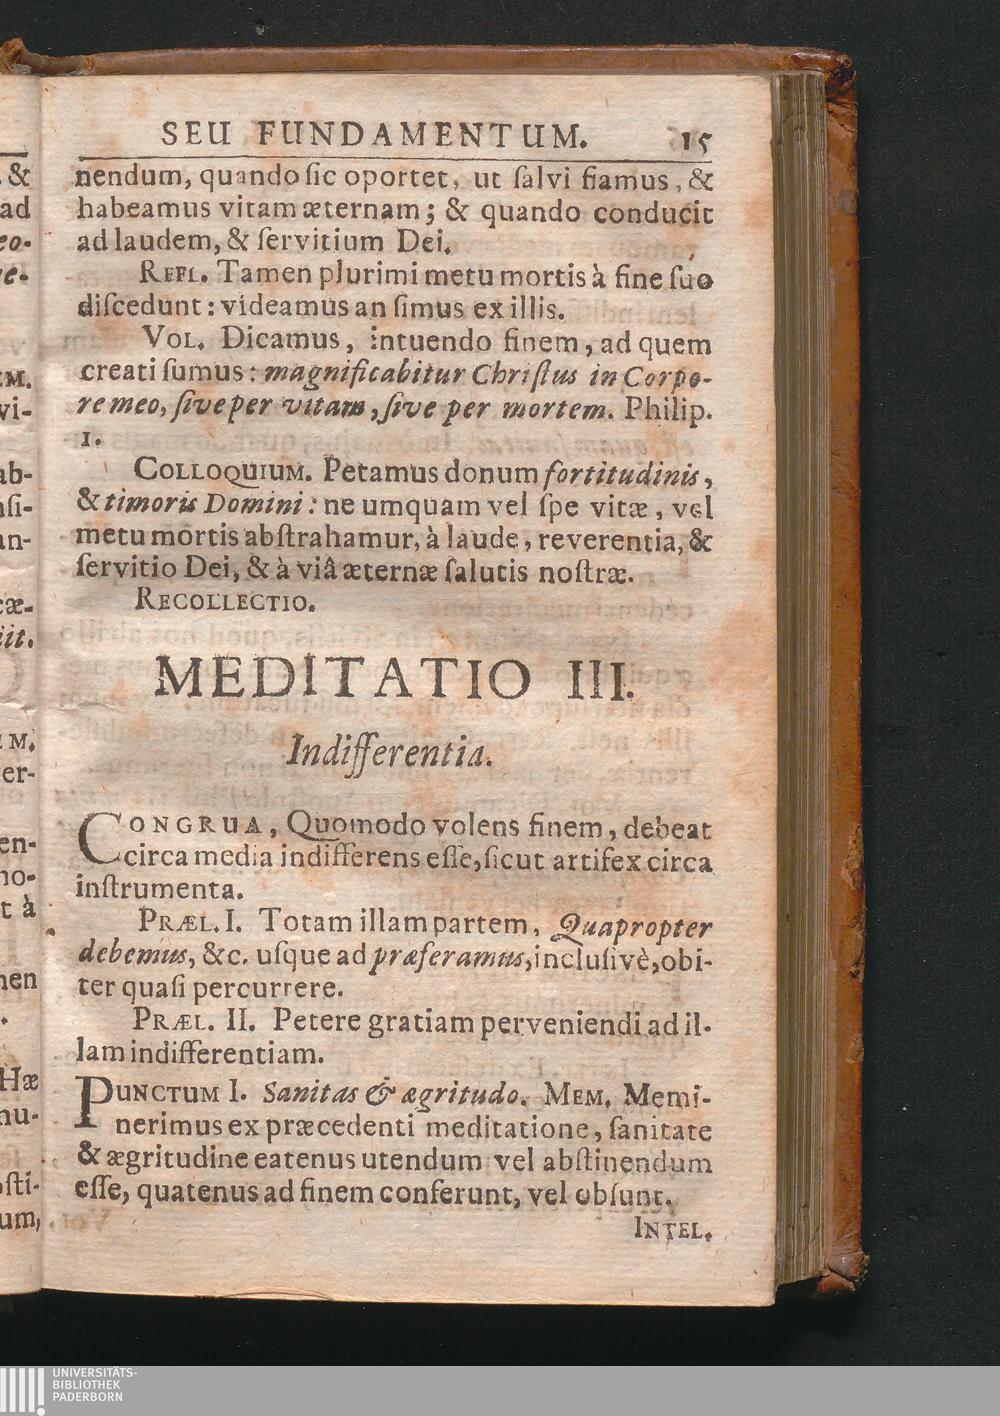 SEU FUNDAMENTUM. 15
nendum, quando ſic oportet, ut ſalvi fiamus, &
habeamus vitam æternam; & quando conducit
ad laudem, & ſervitium Dei.
REFL. Tamen plurimi metu mortis à fine ſuo
diſcedunt: videamus an ſimus ex illis.
VOL. Dicamus, intuendo finem, ad quem
creati ſumus: magnificabitur Chriſtus in Corpo-
re meo, ſive per vitam, ſive per mortem. Philip.
1.
COLLOQUIUM. Petamus donum fortitudinis,
& timoris Domini: ne umquam vel ſpe vitæ, vel
metu mortis abſtrahamur, à laude, reverentia, &
ſervitio Dei, & à viâ æternæ ſalutis noſtræ.
RECOLLECTIO.
MEDITATIO III.
Indifferentia.
CONGRUA, Quomodo volens finem, debeat
circa media indifferens eſſe, ſicut artifex circa
inſtrumenta.
PRÆL. I. Totam illam partem, Quapropter
debemus, &c. uſque ad præferamus, incluſivè, obi-
ter quaſi percurrere.
PRÆL. II. Petere gratiam perveniendi ad il-
lam indifferentiam.
PUNCTUM I. Sanitas & ægritudo. MEM. Memi-
nerimus ex præcedenti meditatione, ſanitate
& ægritudine eatenus utendum vel abſtinendum
eſſe, quatenus ad finem conferunt, vel obſunt.
INTEL.
UNIVERSITÄTS-
BIBLIOTHEK
PADERBORN